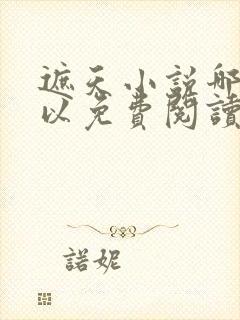 遮天小說哪
以免費閱讀
諾妮